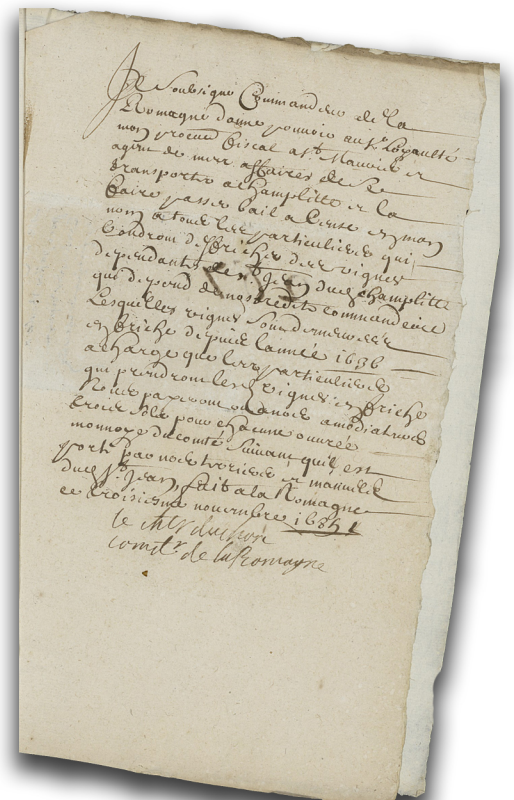 Je Soubsigne Commandeur de la
Romagne donne pouvoir au sr
mon procureur fiscal a st Maurice et
agent de mes affaires de se
transporter a Champlitte et la
faire passer bail a Cense en mon
nom a tous les particuliers qui
voudront deffricher des vignes
dependantes de st Jean dud Champlitte
qui depend de nostredite commanderie
Lesquelles vignes sont demeurees
en friche depuis lannee 1636
a charge que les particuliers
qui prendront les vignes en friche
Nous payeront ou a nos amodiateurs
trois sols pour chacune ouvree
monnoye du comté Suivant quil est
porté par nos terriers et manuels
dud st Jean, fait a la Romagne
ce troisiesme novembre
le chlr
comdr de la Romagne